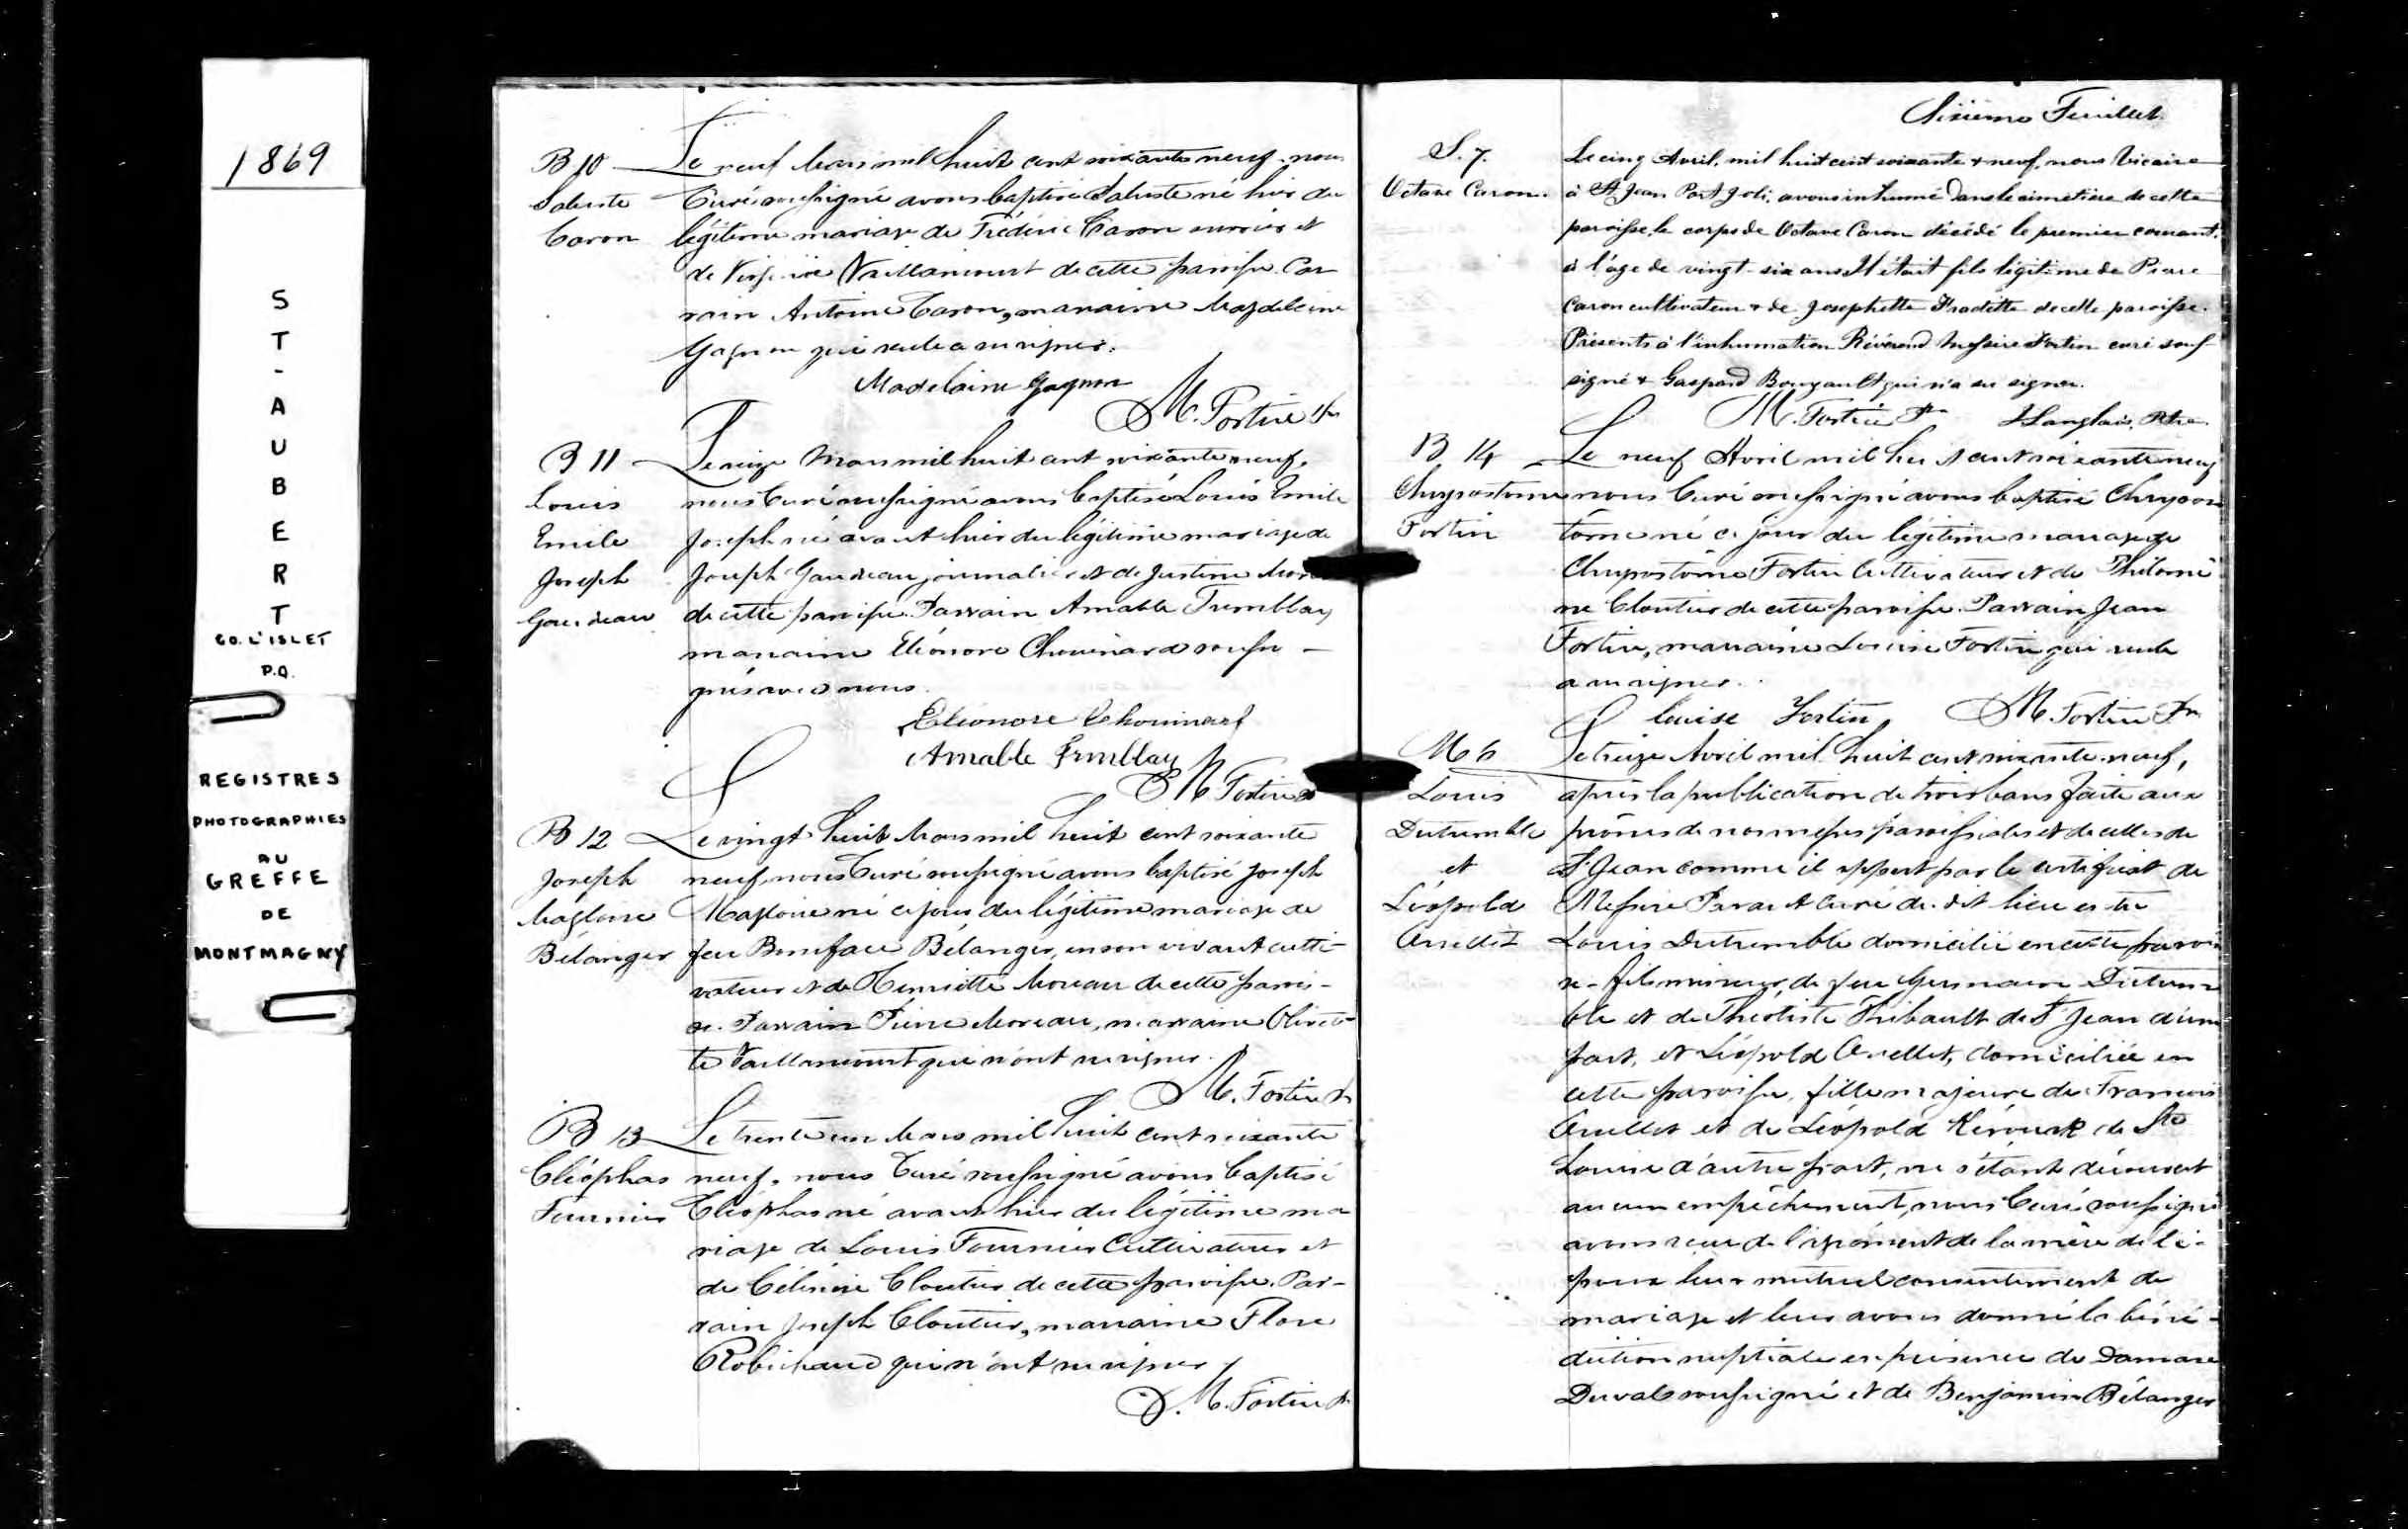 1869
S
T
-
A
U
B
E
R
T
CO. L'ISLET
P.Q.
REGISTRES
PHOTOGRAPHIES
AU
GREFFE
DE
MONTMAGNY
B 10
Saluste
Caron
Le neuf Mars mil huit cent soixante neuf nous
Curé soussigné avons baptisé Saluste né hier du
légitime mariage de Frédéric Caron ouvrier et
de Virginie Vaillancourt de cette paroisse. Par
rain Antoine Caron, marraine Magdeleine
Gagnon qui seule a su signer.
Madelaine Gagnon
M. Fortin Ptr
B 11
Louis
Emile
Joseph
Gaudreau
Le seize Mars mil huit cent soixante neuf,
nous Curé soussigné avons baptisé Louis Emile
Joseph né avant hier du légitime mariage de
Joseph Gaudreau journalier et de Justine
de cette paroisse. Parrain Amable Tremblay
marraine Eléonore Chouinard soussi-
gnés avec nous.
Eléonore Chouinard
Amable Trmblay
M. Fortin
B 12
Joseph
Magloire
Bélanger
Le vingt huit Mars mil huit cent soixante
neuf, nous Curé soussigné avons baptisé Joseph
Magloire né ce jour du légitime mariage de
feu Boniface Bélanger, en son vivant culti-
vateur et de Henriette Moreau de cette parois-
se. Parrain Pierre Moreau, marraine Olivet-
te Vaillancourt qui n'ont su signer.
M. Fortin Ptr
B 13
Cléophas
Fournier
Le trente un Mars mil huit cent soixante
neuf, nous Curé soussigné avons baptisé
Cléophas né avant hier du légitime ma
riage de Louis Fournier Cultivateur et
de Célénire Cloutier de cette paroisse. Par-
rain Joseph Cloutier, marraine Flore
Robichaud qui n'ont su signer
M. Fortin Ptr
Sixième Feuillet.
S. 7.
Octave Caron.
Le cinq Avril, mil huit cent soixante & neuf, nous Vicaire
à St Jean Port Joli, avons inhumé dans le cimetière de cette
paroisse, le corps de Octave Caron décédé le premier courant.
à l'âge de vingt-six ans. Il était fils légitime de Pierre
Caron cultivateur & de Josephette Fradette de cette paroisse.
Présents à l'inhumation Révérend Messire Fortin curé sous-
signé & Gaspard Bourgault qui n'a su signer.
M. Fortin Ptr Langlais, Ptre.
B 14
Chrysostome
Fortin
Le neuf Avril mil huit cent soixante neuf
nous Curé soussigné avons baptisé Chrysos
tôme né ce jour du légitime mariage de
Chrysostôme Fortin Cultivateur et de Philomè
ne Cloutier de cette paroisse. Parrain Jean
Fortin, marraine Louise Fortin qui seule
a su signer.
Louise Fortin M. Fortin Ptr
M 6
Louis
Dutremble
et
Léopold
Ouellet
Le treize Avril mil huit cent soixante neuf,
après la publication de trois bans faite aux
prônes de nos messes paroissiales et de celles de
St Jean comme il appert par le certificat de
Messire Parant Curé du dit lieu entre
Louis Dutremble domicilié en cette parois
se, fils mineur de feu Germain Dutrem
ble et de Théotiste Thibault de St Jean d'une
part, et Léopold Ouellet, domiciliée en
cette paroisse, fille majeure de François
Ouellet et de Léopold Kérouak de Ste
Louise d'autre part, ne s'étant découvert
aucun empêchement, nous Curé soussigné
avons reçu de l'agrément de la mère de l'é-
poux leur mutuel consentement de
mariage et leur avons donné la béné-
diction nuptiale en présence de Damase
Duval soussigné et de Benjamin Bélanger